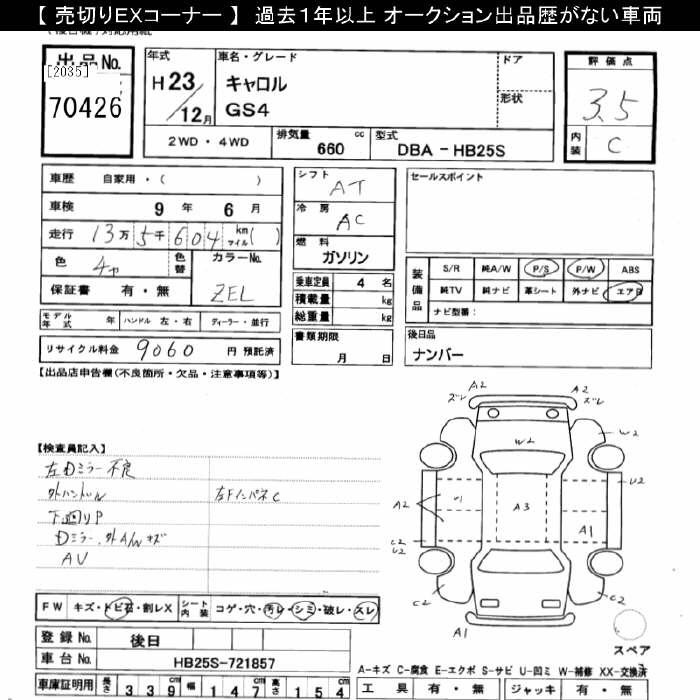 【 売切りEXコーナー 】 過去1年以上 オークション出品歴がない車両
出品No. [2035] 70426
年式 H 23/12月
車名・グレード キャロル GS4
ドア
形状
評価点 3.5
内装 C
2WD・4WD
排気量 660 cc
型式 DBA - HB25S
車歴 自家用・( )
車検 9 年 6 月
走行 13万 5千 604 km マイル( )
色
色替
カラーNo. ZEL
保証書 有・無
シフト AT
冷房 AC
燃料 ガソリン
乗車定員 4 名
積載量 kg
総重量 kg
書類期限 月 日
セールスポイント
装備品 S/R 純A/W P/S P/W ABS
純TV 純ナビ 革シート 外ナビ エアB
ナビ型番:
後日品 ナンバー
モデル年式 年 ハンドル 左・右 ディーラー・並行
リサイクル料金 9060 円 預託済
【出品店申告欄(不良箇所・欠品・注意事項等)】
【検査員記入】
左Dミラー不良
外ハンドル
左Fインパネ C
下廻りP
Dミラー、外A/Wキズ
AV
A2 ズレ
A2 ズレ
W2
W2
U2
A2
A3
A1
C2 U2
C2
C2
C2
A1
スペア
FW キズ・トビ石・割レX
シート内装 コゲ・穴・汚レ・シミ・破レ・スレ
登録No. 後日
車台No. HB25S-721857
A-キズ C-腐食 E-エクボ S-サビ U-凹ミ W-補修 XX-交換済
車庫証明用 長さ 339 cm 幅 147 cm 高さ 154 cm
工具 有・無 ジャッキ 有・無